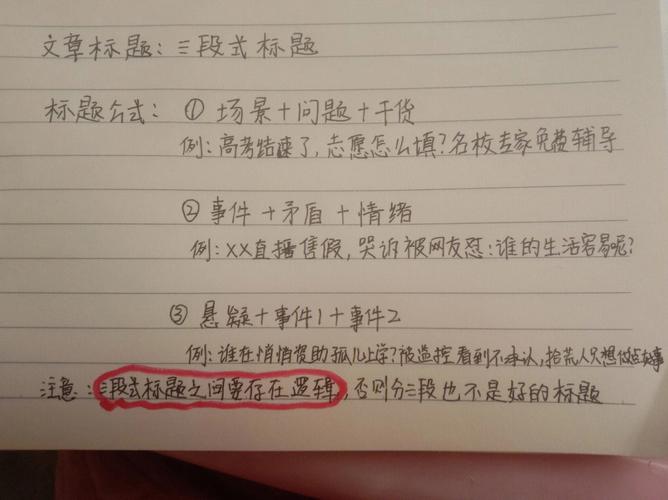 文章标题：三段式标题
标题公式：① 场景+问题+干货
例：高考结束了，志愿怎么填？名校专家免费辅导
② 事件+矛盾+情绪
例：XX直播售假，哭诉被网友怼：谁的生活容易呢？
③ 悬疑+事件1+事件2
例：谁在悄悄资助孤儿上学？被监控看到不承认，拾荒人只想做点好事
注意：三段式标题之间要存在逻辑，否则分三段也不是好的标题